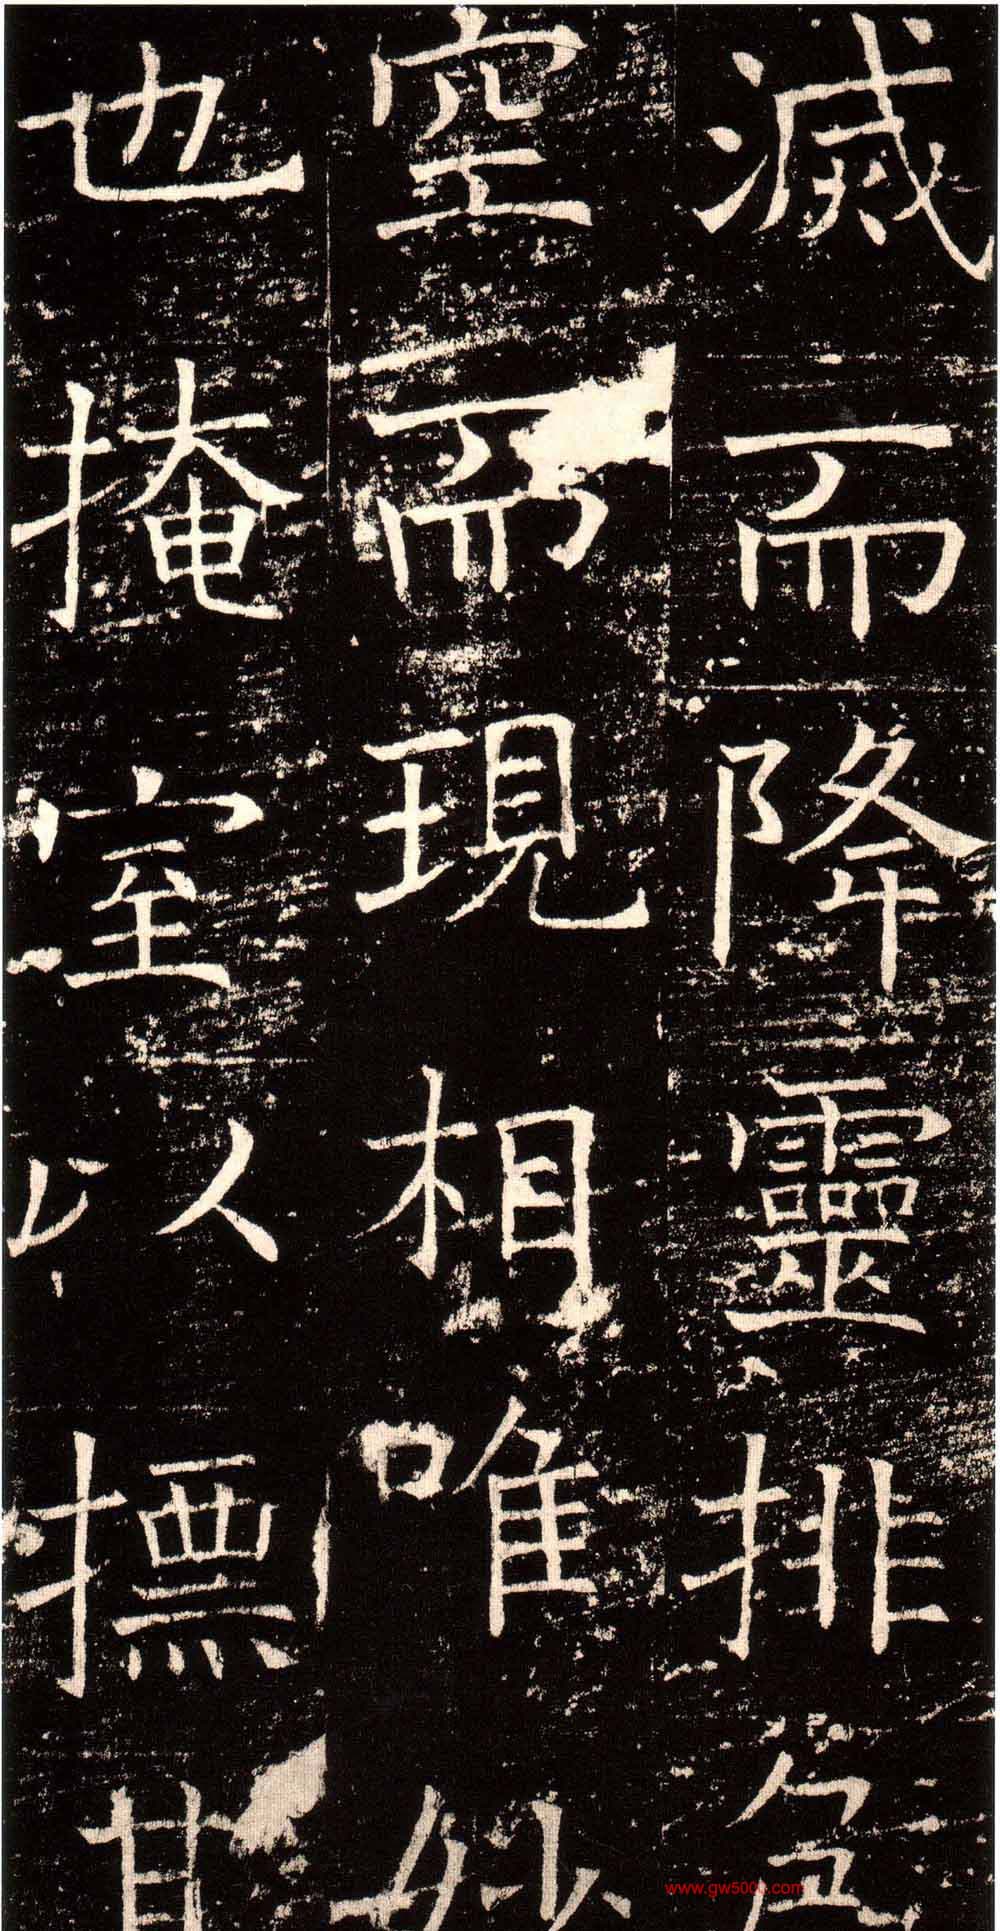 滅而降靈排色
空而現相唯妙
也掩室以摽其
www.gw5000.com